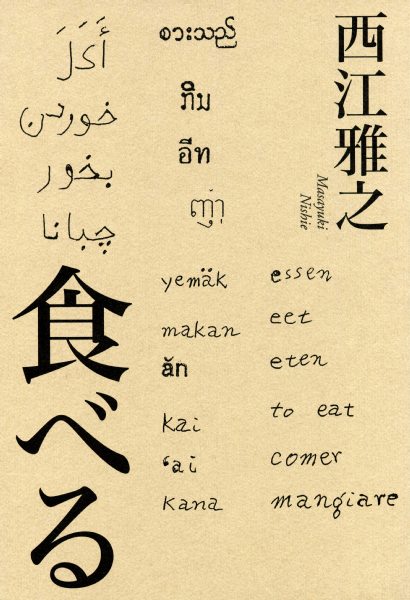 西江雅之
Masayuki
Nishie
စားသည်
ກິນ
อีท
أَكَلَ
خوردن
بخور
چبانا
食べる
yemäk
makan
ăn
kai
ʻai
kana
essen
eet
eten
to eat
comer
mangiare